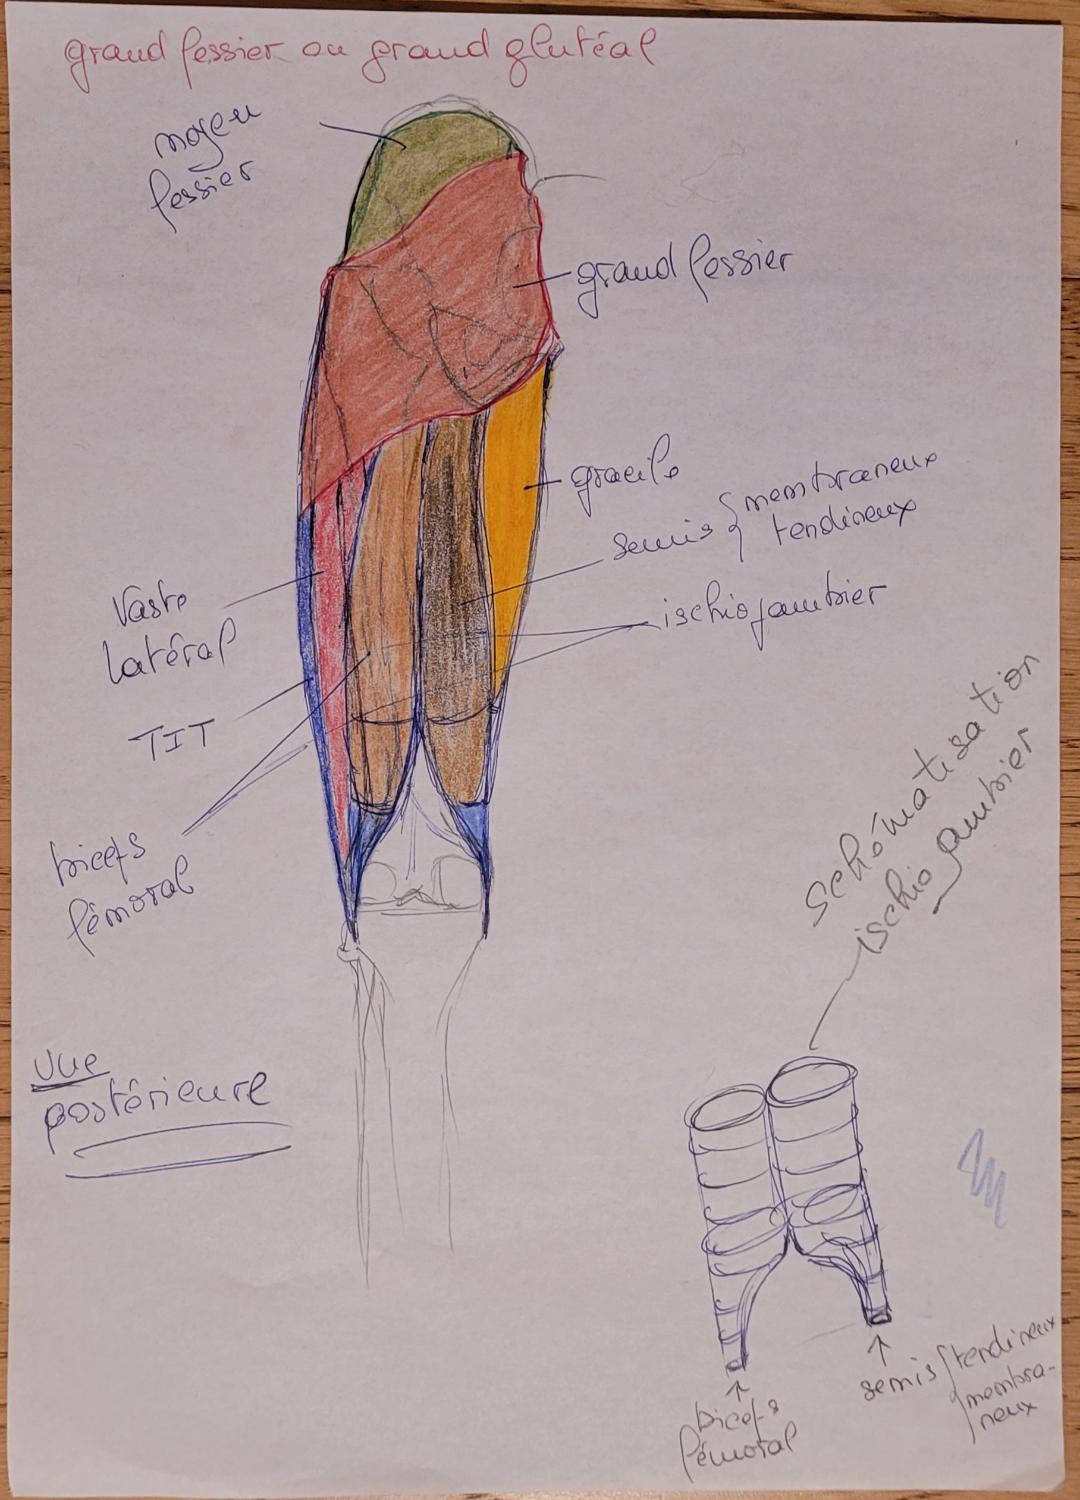 grand fessier ou grand glutéal
moyen
fessier
grand fessier
gracile
semis { membraneux
tendineux
ischio jambier
Vaste
Latéral
TIT
biceps
fémoral
schématisation
ischio jambier
Vue
postérieure
biceps
fémoral
semis { tendineux
membra-
neux